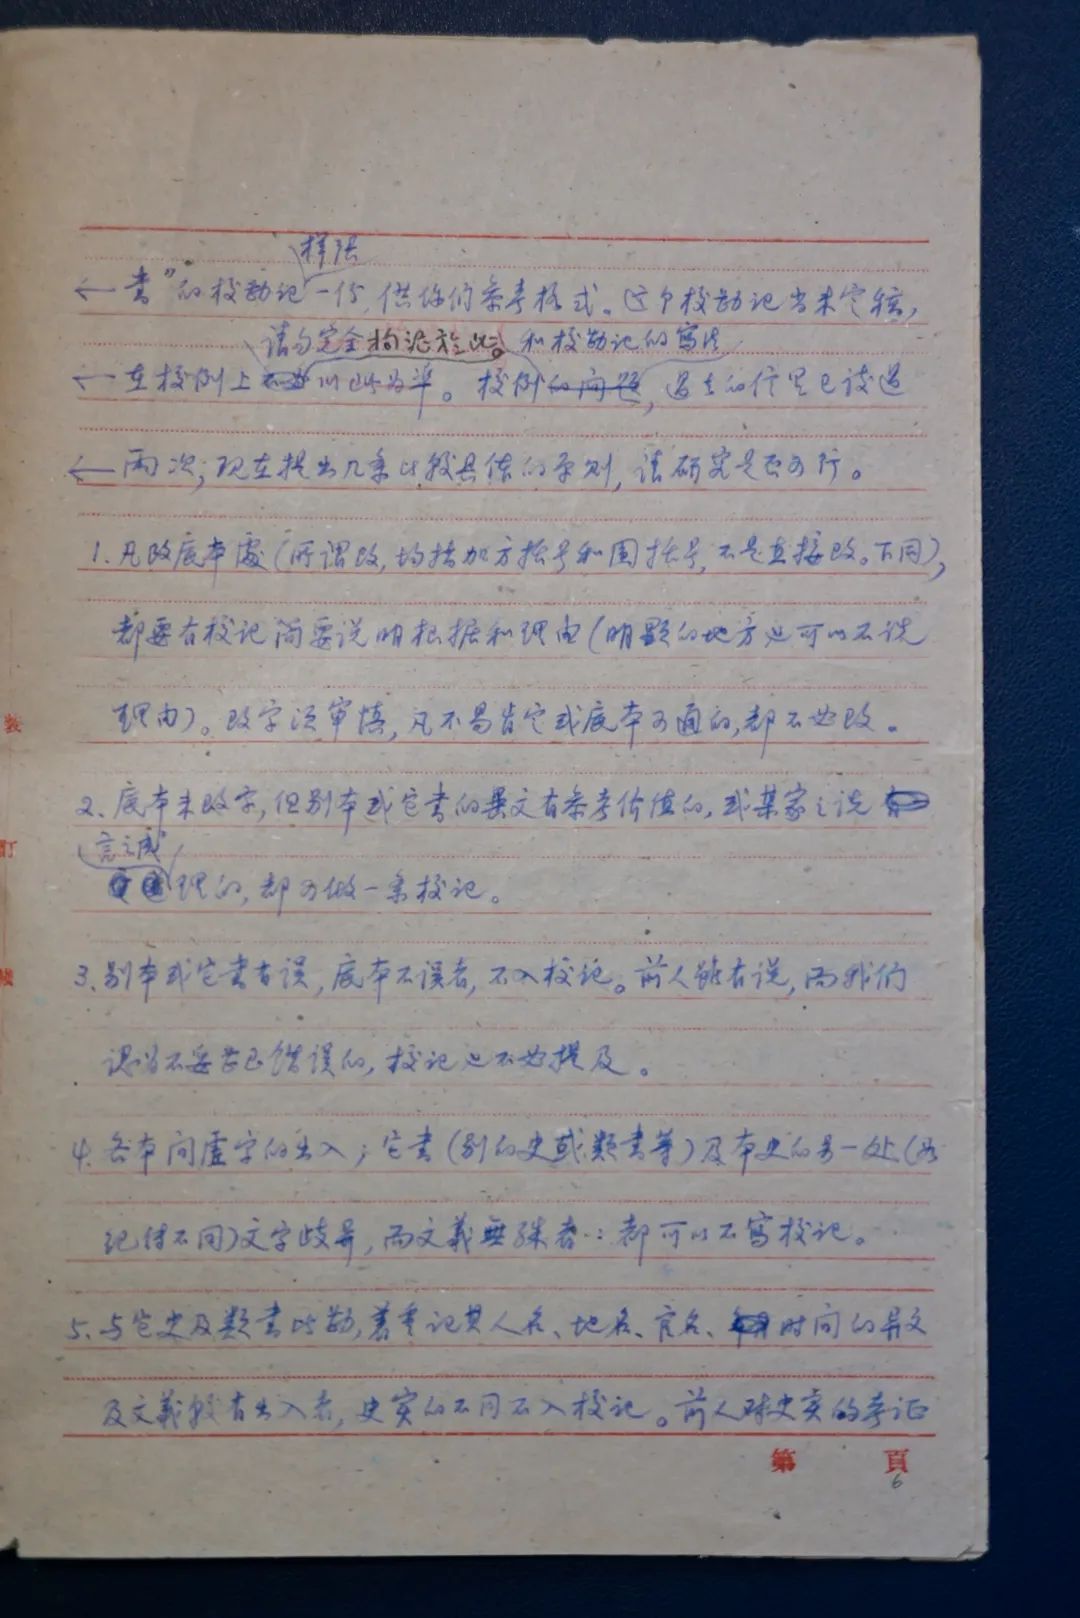 样张
← 书”的校勘记一份，供你们参考格式。这个校勘记当未定稿，
请勿完全拘泥於此。 和校勘记的写法
← 在校例上 以此为准。校例的问题，过去的信里已谈过
← 两次；现在提出几条比较具体的原则，请研究是否可行。
1. 凡改底本处（所谓改，均指加方括号和圆括号，不是直接改。下同），
都要有校记简要说明根据和理由（明显的地方也可以不说
理由）。改字须审慎，凡不易肯定或底本可通的，都不必改。
2、底本未改字，但别本或它书的异文有参考价值的，或某家之说
言之成
理的，都可做一条校记。
3、别本或它书有误，底本不误者，不入校记。前人虽有说，而我们
认为不妥当已错误的，校记也不必提及。
4. 各本间虚字的出入；它书（别的史或类书等）及本史的另一处（如
纪传不同）文字歧异，而文义無殊者：都可以不写校记。
5、与它史及类书比勘，着重记其人名、地名、官名、时间的异文
及文義較有出入者，史实的不同不入校记。前人对史实的考证
装
订
线
第 頁
6